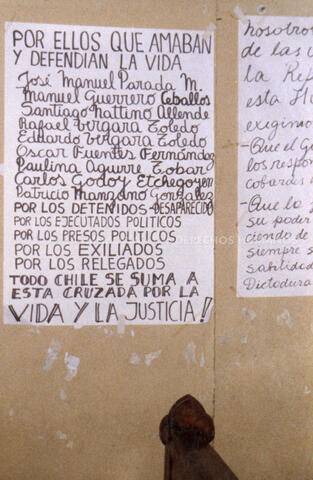 POR ELLOS QUE AMABAN
Y DEFENDIAN LA VIDA
José Manuel Parada M.
Manuel Guerrero Ceballos
Santiago Nattino Allende
Rafael Vergara Toledo
Eduardo Vergara Toledo
Oscar Fuentes Fernández
Paulina Aguirre Tobar
Carlos Godoy Etchegoyen
Patricio Manzano González
POR LOS DETENIDOS-DESAPARECIDO
POR LOS EJECUTADOS POLITICOS
POR LOS PRESOS POLITICOS
POR LOS EXILIADOS
POR LOS RELEGADOS
TODO CHILE SE SUMA A
ESTA CRUZADA POR LA
VIDA Y LA JUSTICIA!
nosotros
de las v
la Rep
esta H
exigimo
-Que el G
los respon
cobardes a
-Que la J
su poder
ciendo de
siempre s
Dictadura
DERECHOS